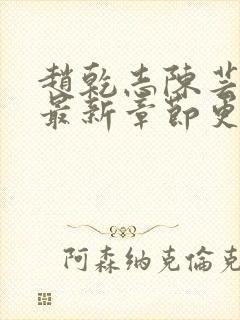 趙乾志陳芸
最新章節更
阿森納克倫克